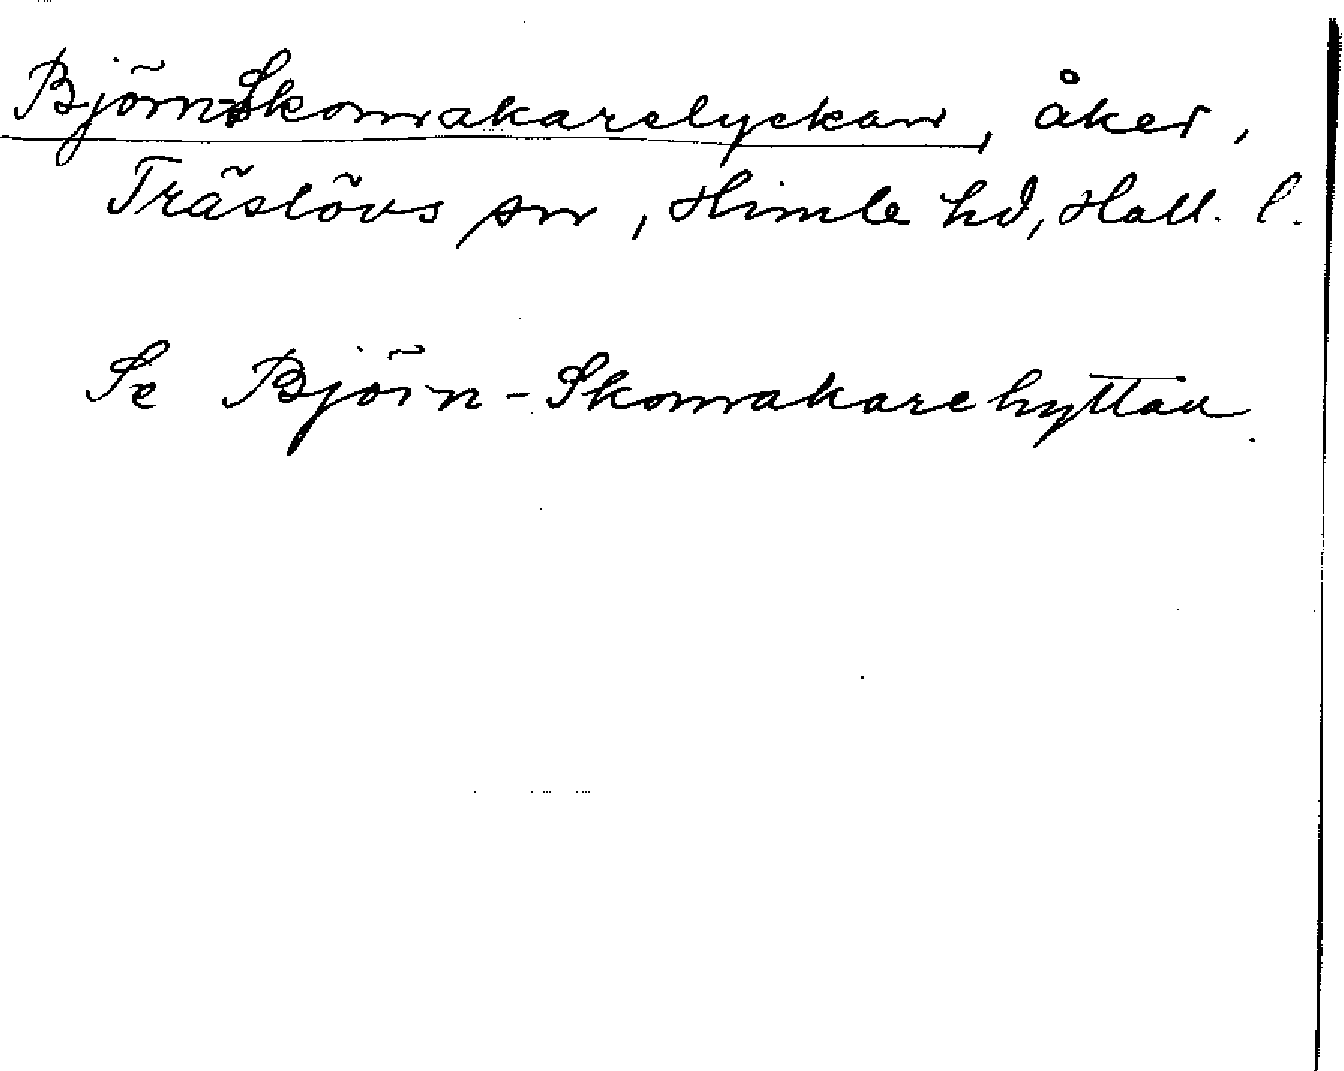 Björn-Skomakarelyckan, åker,
Träslövs sn, Himle hd, Hall. l.
Se Björn-Skomakarehyttan.